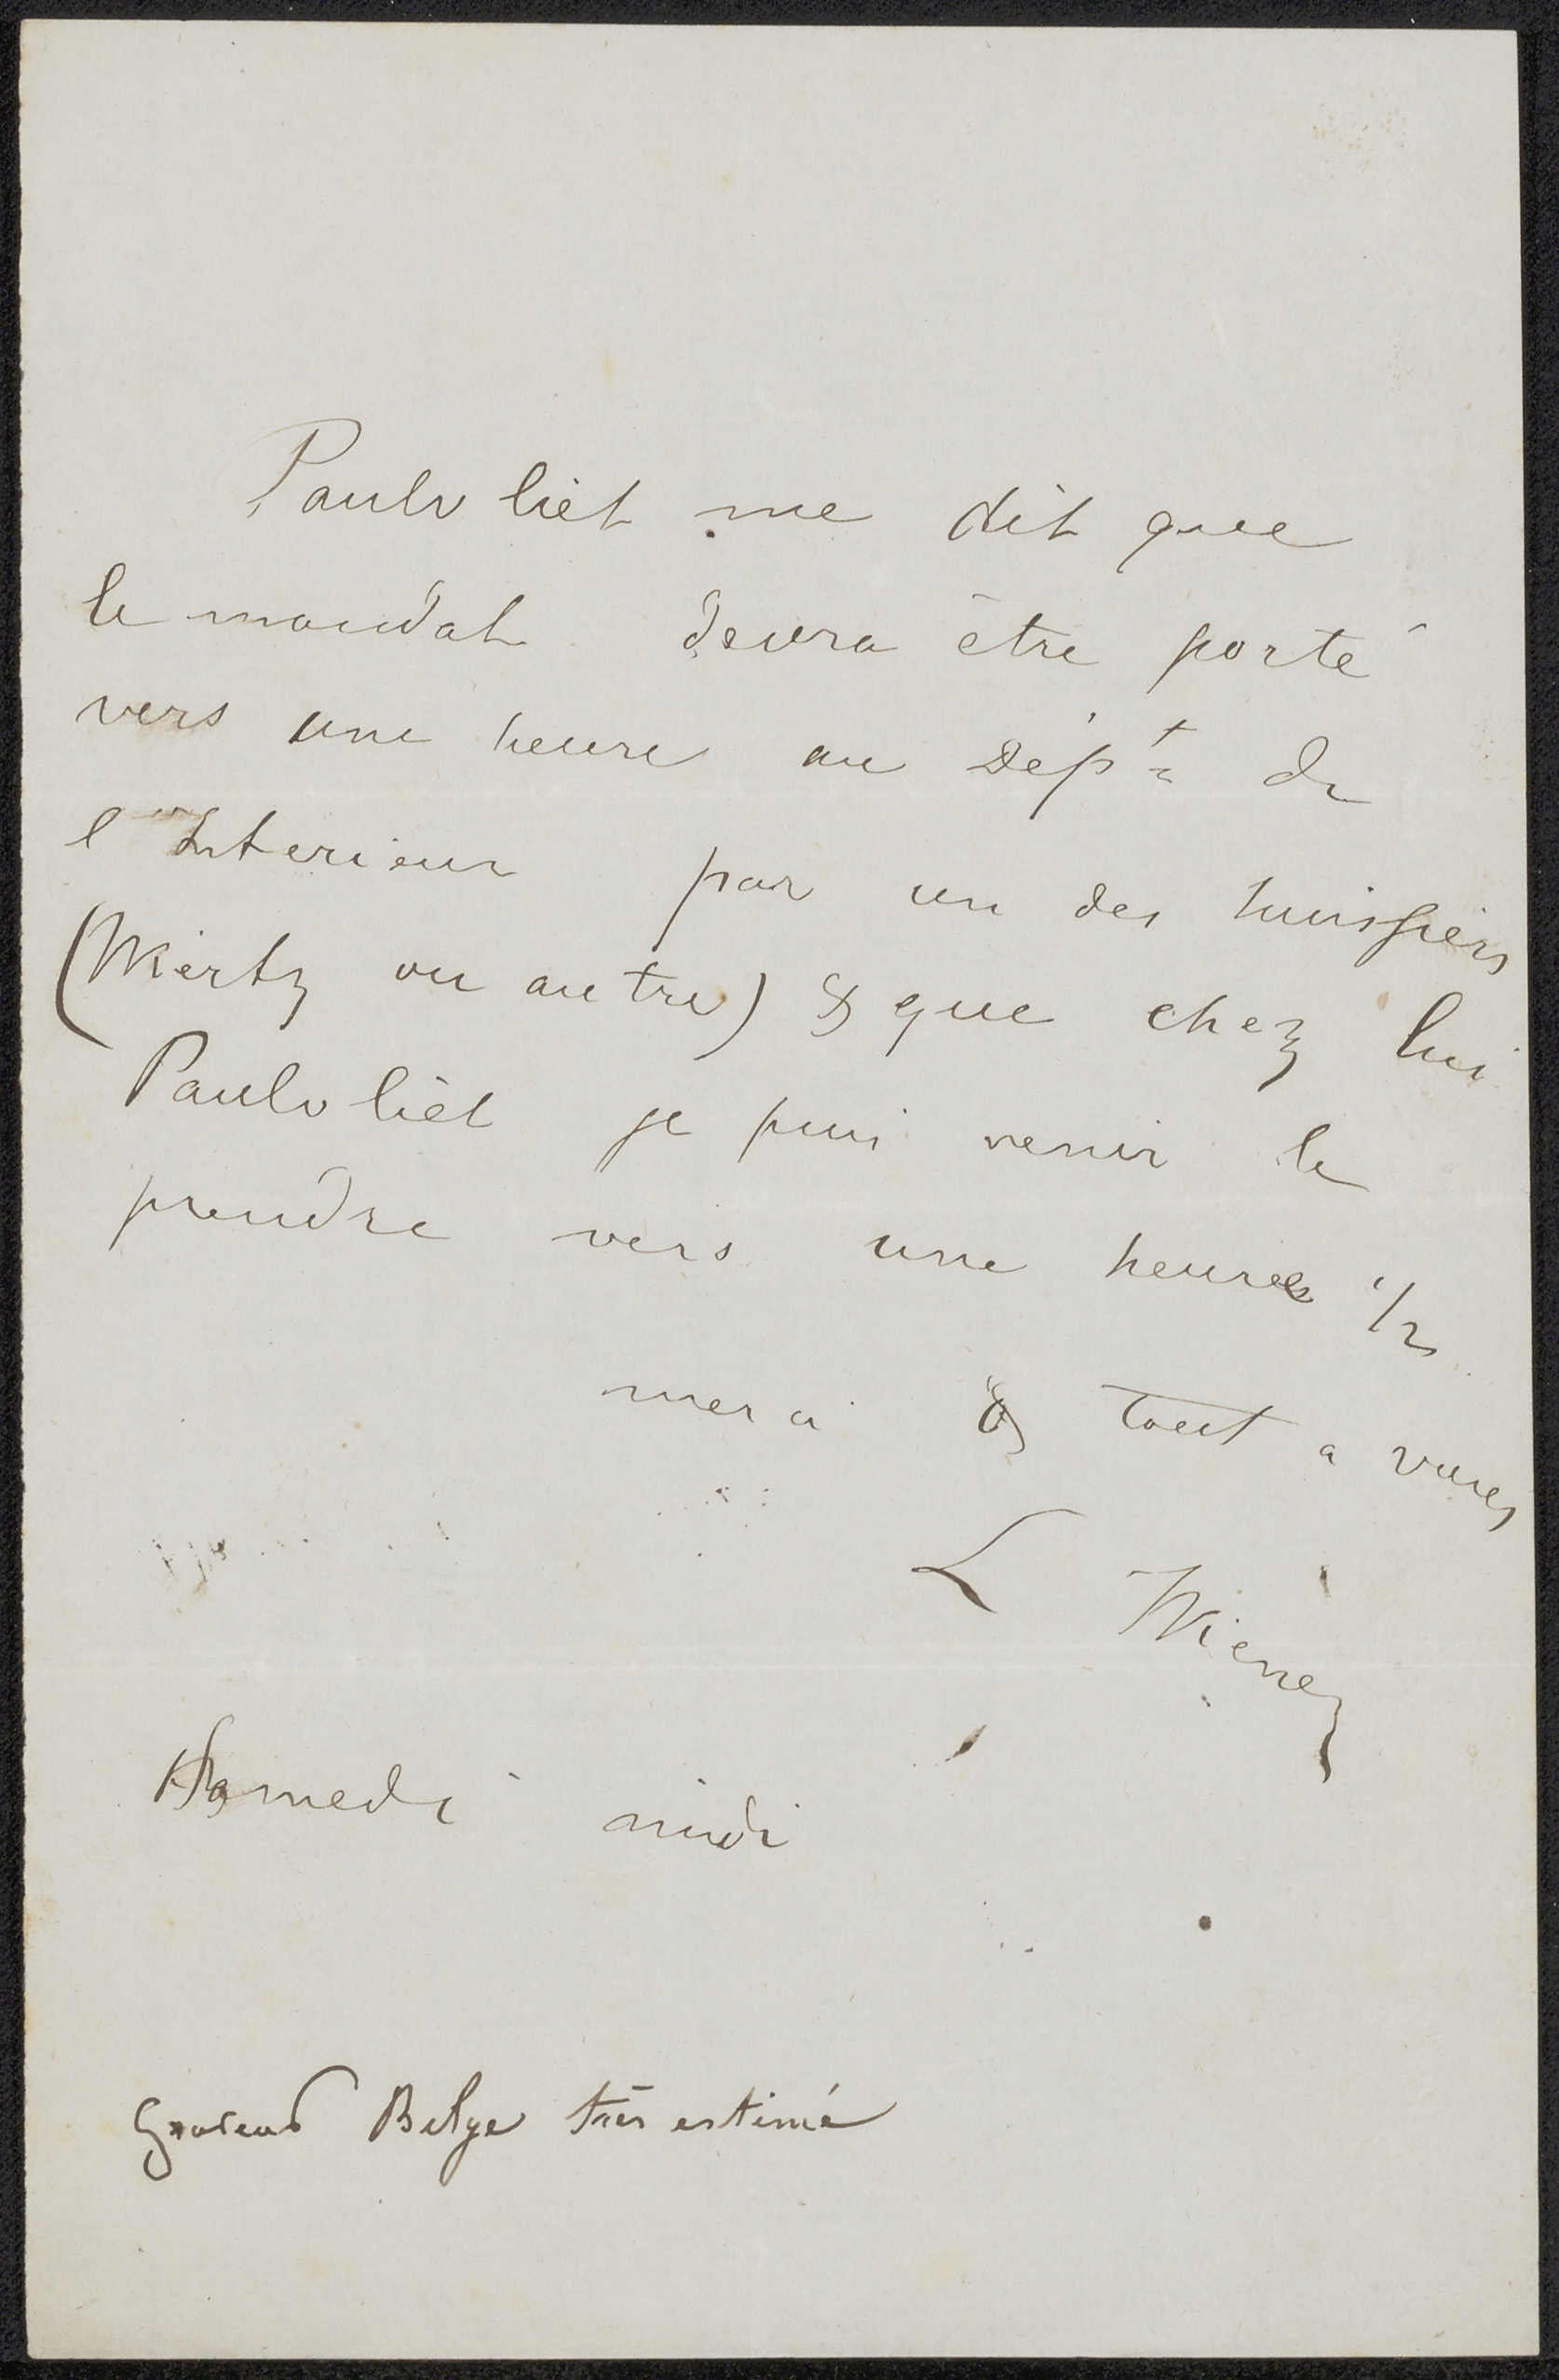 Paulv liet me dit que
le mandat devra être porté
vers une heure au Dépt de
l'Interieur par un des huissiers
(Wiertz ou autre) & que chez lui
Paulv liet je puis venir le
prendre vers une heure 1/2
merci & tout a vous
L Wiener
Samedi midi
Graveur Belge très estimé